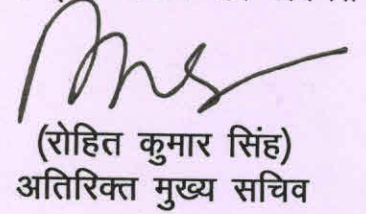 (रोहित कुमार सिंह)
अतिरिक्त मुख्य सचिव